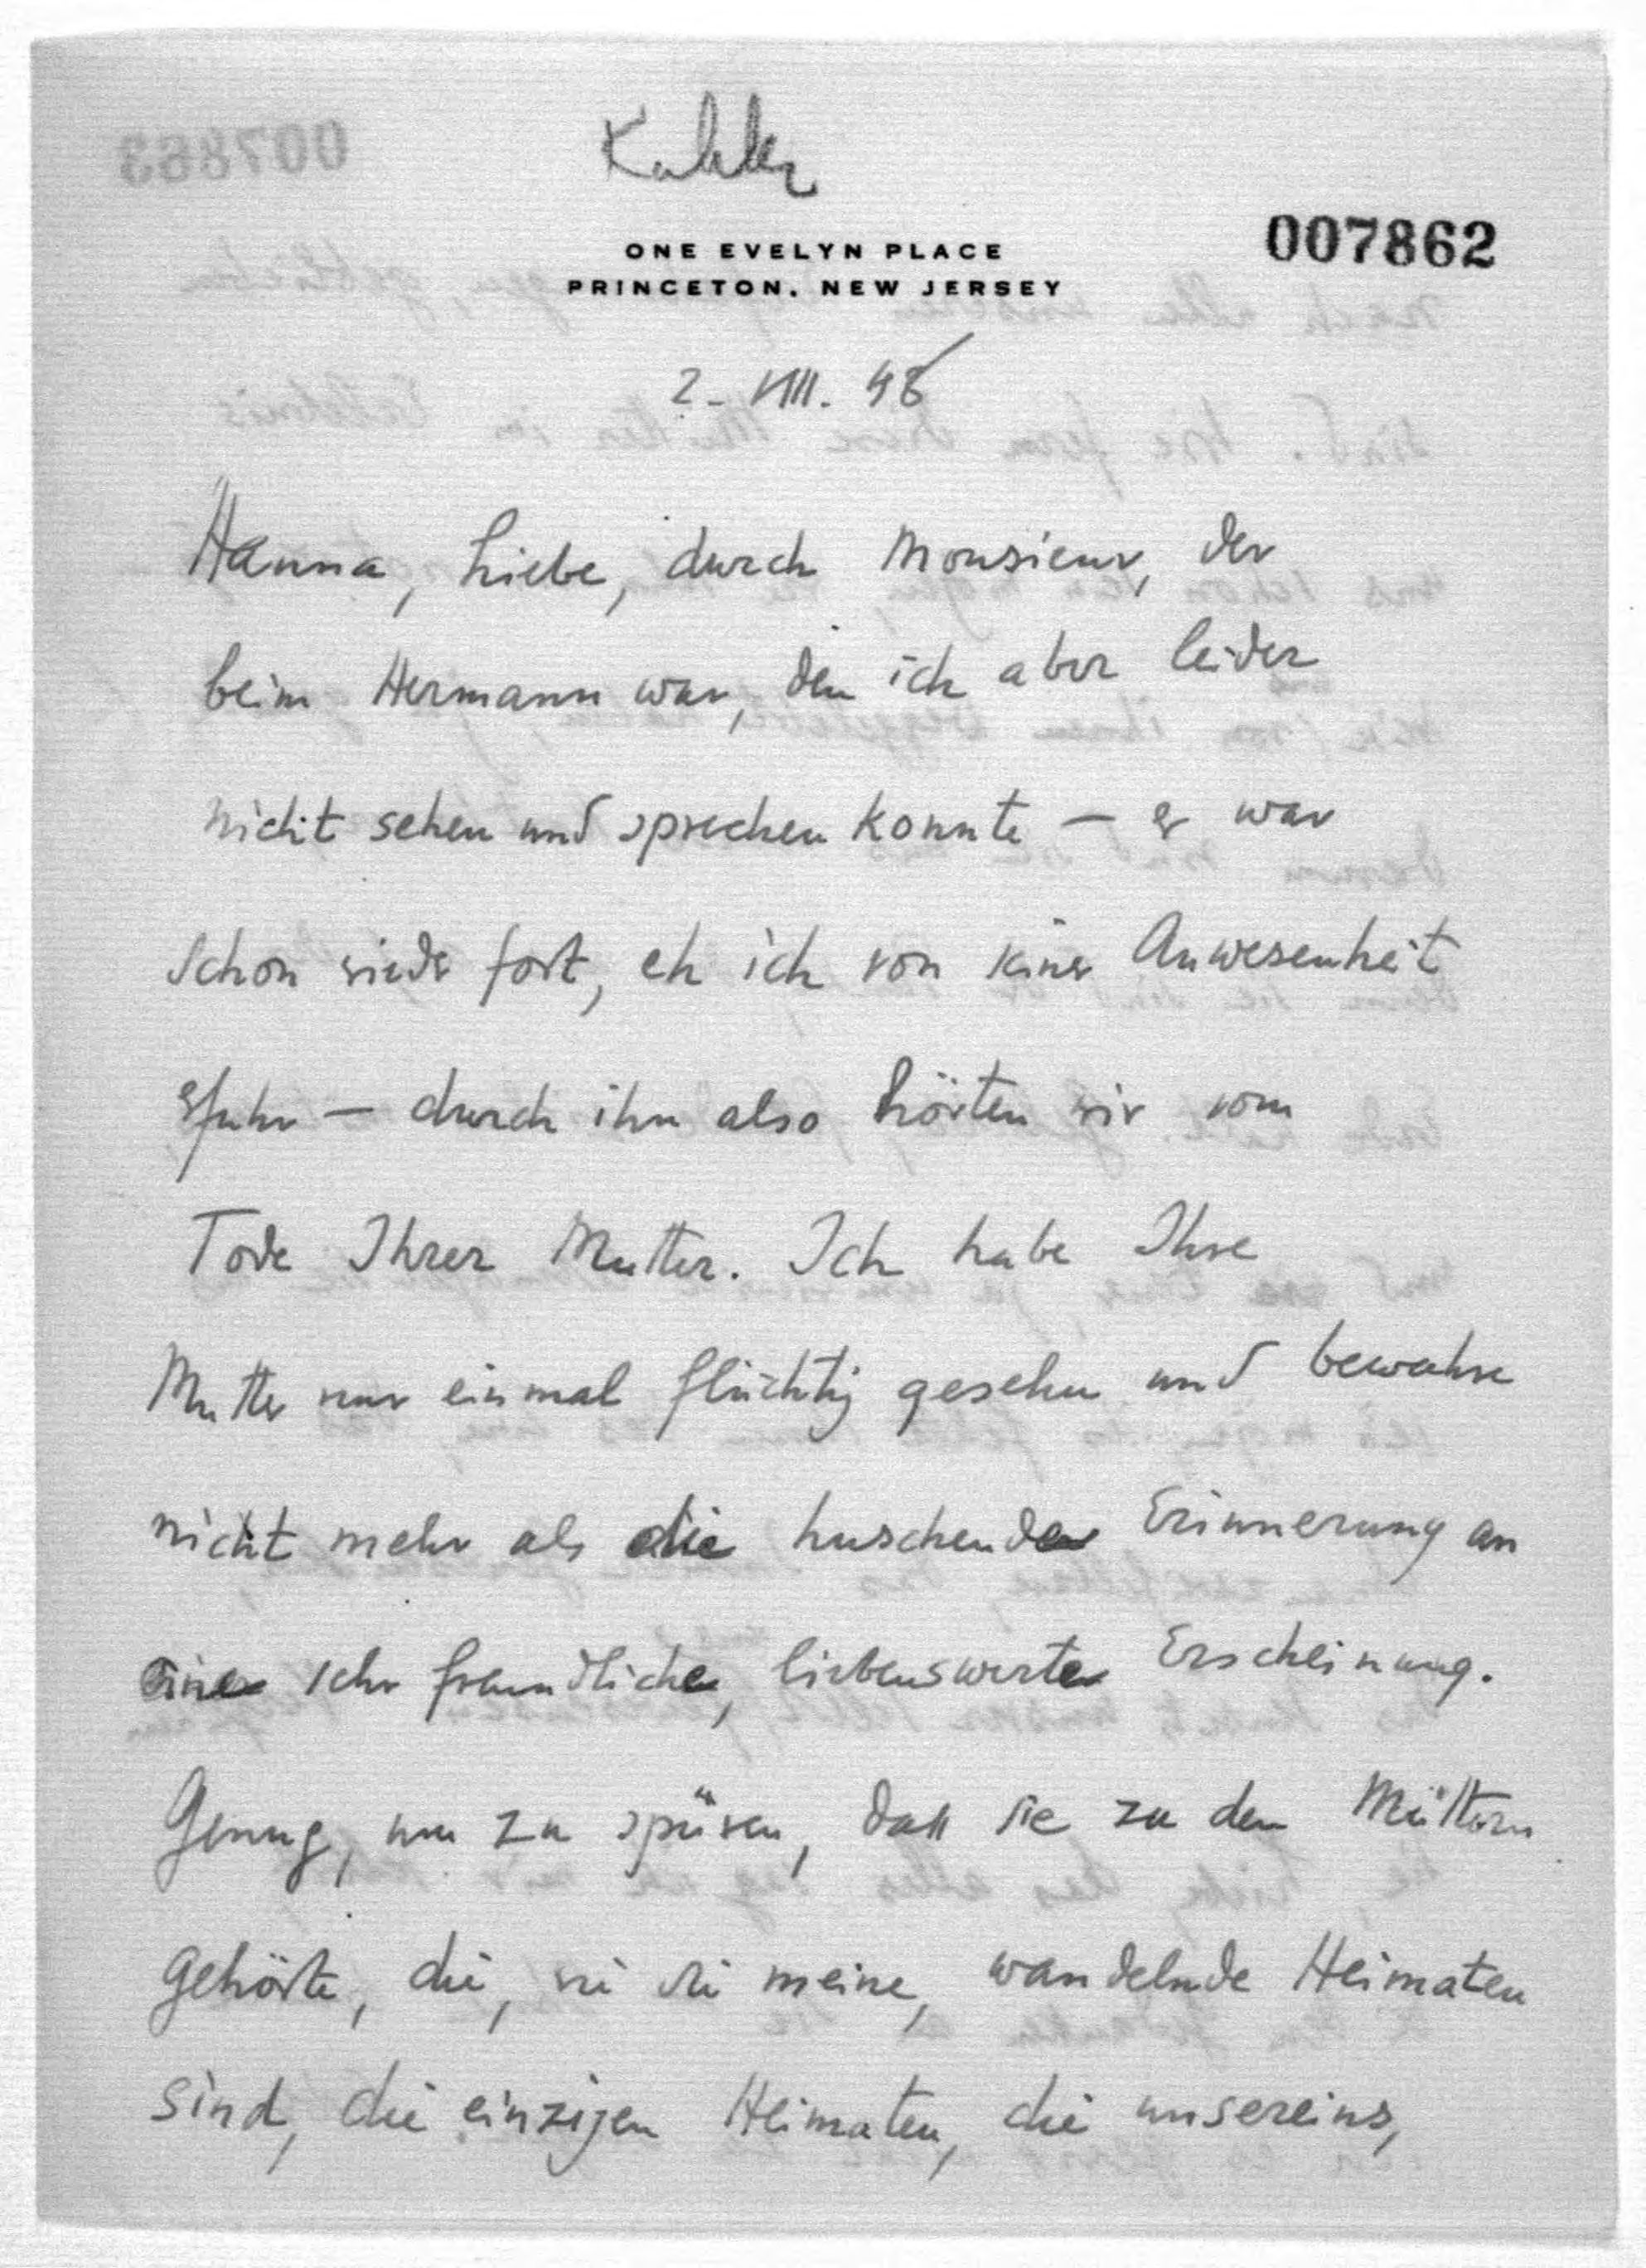 Kahler
007862
ONE EVELYN PLACE
PRINCETON, NEW JERSEY
2. VIII. 48
Hanna, Liebe, durch Monsieur, der
beim Hermann war, den ich aber leider
nicht sehen und sprechen konnte – er war
schon wieder fort, eh ich von seiner Anwesenheit
erfuhr – durch ihn also hörten wir vom
Tode Ihrer Mutter. Ich habe Ihre
Mutter nur einmal flüchtig gesehn und bewahre
nicht mehr als die huschende Erinnerung an
eine sehr freundliche, liebenswerte Erscheinung.
Genug, um zu spüren, dass sie zu den Müttern
gehörte, die, wie die meine, wandelnde Heimaten
sind, die einzigen Heimaten, die unsereins,